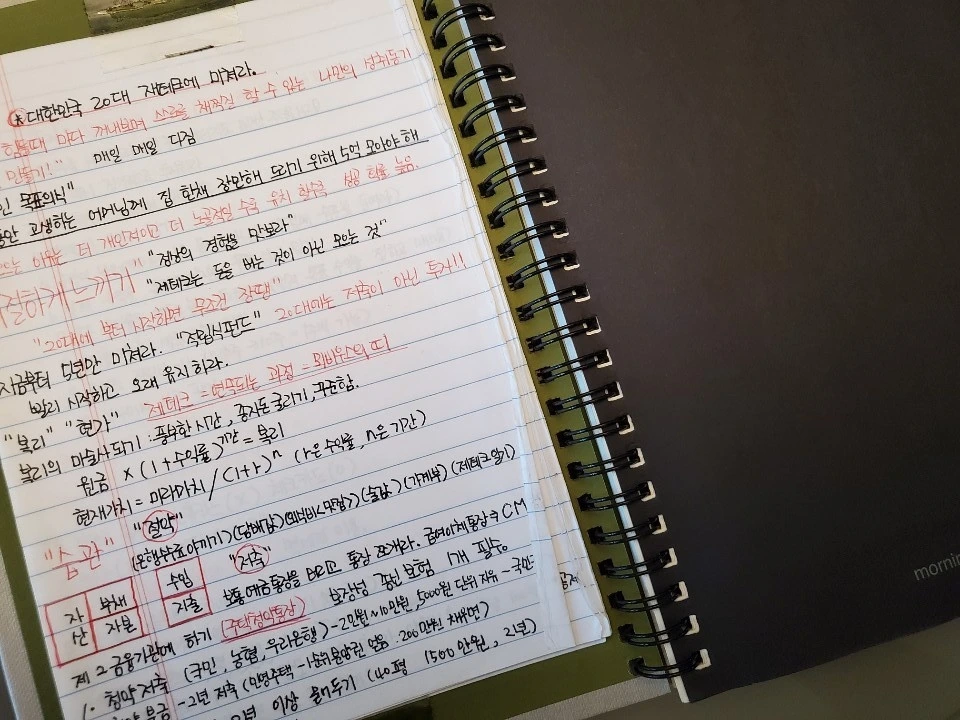 *대한민국 20대 재테크에 미쳐라.
힘들때 마다 꺼내보며 스스로 채찍질 할 수 있는 나만의 성취동기
만들기!" 매일 매일 다짐
목표의식"
고생하는 어머님께 집 한채 장만해 드리기 위해 5억 모아야 해
이유는 더 개인적이고 더 노골적일 수록 유지 할수록 성공 확률 높음.
절하게 느끼기 "정상의 경험을 맛보라"
"재테크는 돈을 버는 것이 아닌 모으는 것"
"20대에 부터 시작하면 무조건 장땡" 20대에는 저축이 아닌 투자!!
지금부터 5년만 미쳐라. "적립식펀드"
빨리 시작하고 오래 유지하라.
"복리" "현가" 재테크 = 연속되는 과정 = 뫼비우스의 띠
복리의 마술사되기 : 풍부한 시간, 종자돈 굴리기, 꾸준함.
원금 × (1+수익률)기간 = 복리
현재가치 = 미래가치 / (1+r)ⁿ (r은 수익률, n은 기간)
"습관" "절약"
(은행수수료아끼기)(담배값)(술값)(가계부)(재테크일기)
자산 부채 자본
수입 지출
"저축"
보통예금통장을 버리고 통장 쪼개라. 급여이체통장→CM
제2금융기관에 하기 (주택청약통장) 보장성 갱신 보험 1개 필수
1. 청약저축 (국민, 농협, 우리은행) -2만원~10만원, 5000원 단위 자유 -국민
부금 -2년 저축 (민영주택 -1순위 200만원 채우면)
2년 이상 묻어두기 (40평 1500만원, 2년)
mornin